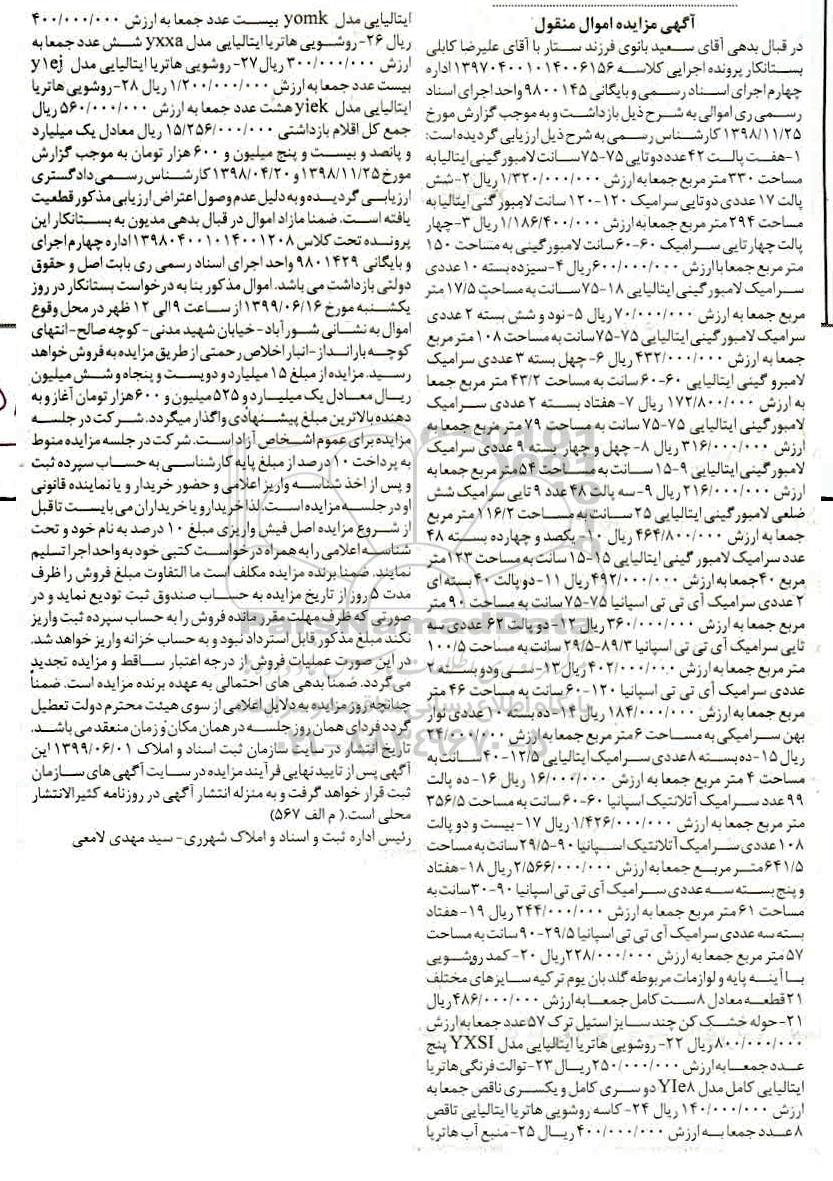 آگهی مزایده اموال منقول
در قبال بدهی آقای سعید بانوی فرزند ستار با آقای علیرضا کابلی
بستانکار پرونده اجرایی کلاسه ۱۳۹۷۰۴۰۰۱۰۱۴۰۰۶۱۵۶ اداره
چهارم اجرای اسناد رسمی و بایگانی ۹۸۰۰۱۴۵ واحد اجرای اسناد
رسمی ری اموالی به شرح ذیل بازداشت و به موجب گزارش مورخ
۱۳۹۸/۱۱/۲۵ کارشناس رسمی به شرح ذیل ارزیابی گردیده است:
۱-هفت پالت ۴۲ عدد دوتایی ۷۵-۷۵ سانت لامبور گینی ایتالیا به
مساحت ۳۳۰ متر مربع جمعا به ارزش ۱/۳۲۰/۰۰۰/۰۰۰ ریال ۲-شش
پالت ۱۷ عددی دوتایی سرامیک ۱۲۰-۱۲۰ سانت لامبور گنی ایتالیا به
مساحت ۲۹۴ متر مربع جمعا به ارزش ۱/۱۸۶/۴۰۰/۰۰۰ ریال ۳-چهار
پالت چهارتایی سرامیک ۶۰-۶۰ سانت لامبورگینی به مساحت ۱۵۰
متر مربع جمعا باارزش ۶۰۰/۰۰۰/۰۰۰ ریال ۴-سیزده بسته ۱۰ عددی
سرامیک لامبور گینی ایتالیایی ۱۸-۷۵ سانت به مساحت ۱۷/۵ متر
مربع جمعا به ارزش ۷۰/۰۰۰/۰۰۰ ریال ۵- نود و شش بسته ۲ عددی
سرامیک لامبور گینی ایتالیایی ۷۵-۷۵ سانت به مساحت ۱۰۸ متر مربع
جمعا به ارزش ۴۳۲/۰۰۰/۰۰۰ ریال ۶- چهل بسته ۳ عددی سرامیک
لامبرو گینی ایتالیایی ۶۰-۶۰ سانت به مساحت ۴۳/۲ متر مربع جمعا
به ارزش ۱۷۲/۸۰۰/۰۰۰ ریال ۷- هفتاد بسته ۲ عددی سرامیک
لامبور گینی ایتالیایی ۷۵-۷۵ سانت به مساحت ۷۹ متر مربع جمعا به
ارزش ۳۱۶/۰۰۰/۰۰۰ ریال ۸- چهل و چهار بسته ۹ عددی سرامیک
لامبور گینی ایتالیایی ۹-۱۵ سانت به مساحت ۵۴ متر مربع جمعا به
ارزش ۲۱۶/۰۰۰/۰۰۰ ریال ۹-سه پالت ۴۸ عدد ۹ تایی سرامیک شش
ضلعی لامبور گینی ایتالیایی ۲۵ سانت به مساحت ۱۱۶/۲ متر مربع
جمعا به ارزش ۴۶۴/۸۰۰/۰۰۰ ریال ۱۰-یکصد و چهارده بسته ۴۸
عدد سرامیک لامبور گینی ایتالیایی ۱۵-۱۵ سانت به مساحت ۱۲۳ متر
مربع ۴۰ جمعا به ارزش ۴۹۲/۰۰۰/۰۰۰ ریال ۱۱-دو پالت ۴۰ بسته ای
۲ عددی سرامیک آی تی تی اسپانیا ۷۵-۷۵ سانت به مساحت ۹۰ متر
مربع جمعا به ارزش ۳۶۰/۰۰۰/۰۰۰ ریال ۱۲-دو پالت ۶۲ عددی سه
تایی سرامیک آی تی تی اسپانیا ۸۹/۳-۲۹/۵ سانت به مساحت ۱۰۰/۵
متر مربع جمعا به ارزش ۴۰۲/۰۰۰/۰۰۰ ریال ۱۳-سی و دو بسته ۲
عددی سرامیک آی تی تی اسپانیا ۱۲۰-۶۰ سانت به مساحت ۴۶ متر
مربع جمعا به ارزش ۱۸۴/۰۰۰/۰۰۰ ریال ۱۴-ده بسته ۱۰ عددی نوار
پهن سرامیکی به مساحت ۶ متر مربع جمعا به ارزش ۲۴/۰۰۰/۰۰۰
ریال ۱۵-ده بسته ۸ عددی سرامیک ایتالیایی ۱۲/۵-۴۰ سانت به
مساحت ۴ متر مربع جمعا به ارزش ۱۶/۰۰۰/۰۰۰ ریال ۱۶- ده پالت
۹۹ عدد سرامیک آتلانتیک اسپانیا ۶۰-۶۰ سانت به مساحت ۳۵۶/۵
متر مربع جمعا به ارزش ۱/۴۲۶/۰۰۰/۰۰۰ ریال ۱۷-بیست و دو پالت
۱۰۸ عددی سرامیک آتلانتیک اسپانیا ۹۰-۲۹/۵ سانت به مساحت
۶۴۱/۵ متر مربع جمعا به ارزش ۲/۵۶۶/۰۰۰/۰۰۰ ریال ۱۸-هفتاد
و پنج بسته سه عددی سرامیک آی تی تی اسپانیا ۹۰-۳۰ سانت به
مساحت ۶۱ متر مربع جمعا به ارزش ۲۴۴/۰۰۰/۰۰۰ ریال ۱۹-هفتاد
بسته سه عددی سرامیک آی تی تی اسپانیا ۲۹/۵-۹۰ سانت به مساحت
۵۷ متر مربع جمعا به ارزش ۲۲۸/۰۰۰/۰۰۰ ریال ۲۰-کمد روشویی
با آینه پایه و لوازمات مربوطه گلدبان یوم ترکیه سایزهای مختلف
۲۱ قطعه معادل ۸ ست کامل جمعا به ارزش ۴۸۶/۰۰۰/۰۰۰ ریال
۲۱-حوله خشک کن چند سایز استیل ترک ۵۷ عدد جمعا به ارزش
۸۰۰/۰۰۰/۰۰۰ ریال ۲۲- روشویی هاتریا ایتالیایی مدل YXSI پنج
عدد جمعا به ارزش ۲۵۰/۰۰۰/۰۰۰ ریال ۲۳-توالت فرنگی هاتریا
ایتالیایی کامل مدل YIe۸ دو سری کامل و یکسری ناقص جمعا به
ارزش ۱۴۰/۰۰۰/۰۰۰ ریال ۲۴-کاسه روشویی هاتریا ایتالیایی ناقص
۸ عدد جمعا به ارزش ۴۰۰/۰۰۰/۰۰۰ ریال ۲۵-منبع آب هاتریا
ایتالیایی مدل yomk بیست عدد جمعا به ارزش ۴۰۰/۰۰۰/۰۰۰
ریال ۲۶- روشویی هاتریا ایتالیایی مدل yxxa شش عدد جمعا به
ارزش ۳۰۰/۰۰۰/۰۰۰ ریال ۲۷- روشویی هاتریا ایتالیایی مدل y1ej
بیست عدد جمعا به ارزش ۱/۲۰۰/۰۰۰/۰۰۰ ریال ۲۸-روشویی هاتریا
ایتالیایی مدل yiek هشت عدد جمعا به ارزش ۵۶۰/۰۰۰/۰۰۰ ریال
جمع کل اقلام بازداشتی ۱۵/۲۵۶/۰۰۰/۰۰۰ ریال معادل یک میلیارد
و پانصد و بیست و پنج میلیون و ۶۰۰ هزار تومان به موجب گزارش
مورخ ۱۳۹۸/۱۱/۲۵ و ۱۳۹۸/۰۴/۲۰ کارشناس رسمی دادگستری
ارزیابی گردیده و به دلیل عدم وصول اعتراض ارزیابی مذکور قطعیت
یافته است. ضمنا مازاد اموال در قبال بدهی مدیون به بستانکار این
پرونده تحت کلاس ۱۳۹۸۰۴۰۰۱۰۱۴۰۰۱۲۰۸ اداره چهارم اجرای
و بایگانی ۹۸۰۱۴۲۹ واحد اجرای اسناد رسمی ری بابت اصل و حقوق
دولتی بازداشت می باشد. اموال مذکور بنا به درخواست بستانکار در روز
یکشنبه مورخ ۱۳۹۹/۰۶/۱۶ از ساعت ۹ الی ۱۲ ظهر در محل وقوع
اموال به نشانی شورآباد-خیابان شهید مدنی-کوچه صالح-انتهای
کوچه بارانداز-انبار اخلاص رحمتی از طریق مزایده به فروش خواهد
رسید. مزایده از مبلغ ۱۵ میلیارد و دویست و پنجاه و شش میلیون
ریال معادل یک میلیارد و ۵۲۵ میلیون و ۶۰۰ هزار تومان آغاز و به
دهنده بالاترین مبلغ پیشنهادی واگذار میگردد. شرکت در جلسه
مزایده برای عموم اشخاص آزاد است. شرکت در جلسه مزایده منوط
به پرداخت ۱۰ درصد از مبلغ پایه کارشناسی به حساب سپرده ثبت
و پس از اخذ شناسه واریز اعلامی و حضور خریدار و یا نماینده قانونی
او در جلسه مزایده است. لذا خریدار و یا خریداران می بایست تا قبل
از شروع مزایده اصل فیش واریزی مبلغ ۱۰ درصد به نام خود و تحت
شناسه اعلامی را به همراه درخواست کتبی خود به واحد اجرا تسلیم
نمایند. ضمنا برنده مزایده مکلف است ما التفاوت مبلغ فروش را ظرف
مدت ۵ روز از تاریخ مزایده به حساب صندوق ثبت تودیع نماید و در
صورتی که ظرف مهلت مقرر مانده فروش را به حساب سپرده ثبت واریز
نکند مبلغ مذکور قابل استرداد نبود و به حساب خزانه واریز خواهد شد.
در این صورت عملیات فروش از درجه اعتبار ساقط و مزایده تجدید
می گردد. ضمنا بدهی های احتمالی به عهده برنده مزایده است. ضمنا
چنانچه روز مزایده به دلایل اعلامی از سوی هیئت محترم دولت تعطیل
گردد فردای همان روز جلسه در همان مکان و زمان منعقد می باشد.
تاریخ انتشار در سایت سازمان ثبت اسناد و املاک ۱۳۹۹/۰۶/۰۱ این
آگهی پس از تایید نهایی فرآیند مزایده در سایت آگهی های سازمان
ثبت قرار خواهد گرفت و به منزله انتشار آگهی در روزنامه کثیرالانتشار
محلی است.( م الف ۵۶۷)
رئیس اداره ثبت و اسناد و املاک شهرری- سید مهدی لامعی